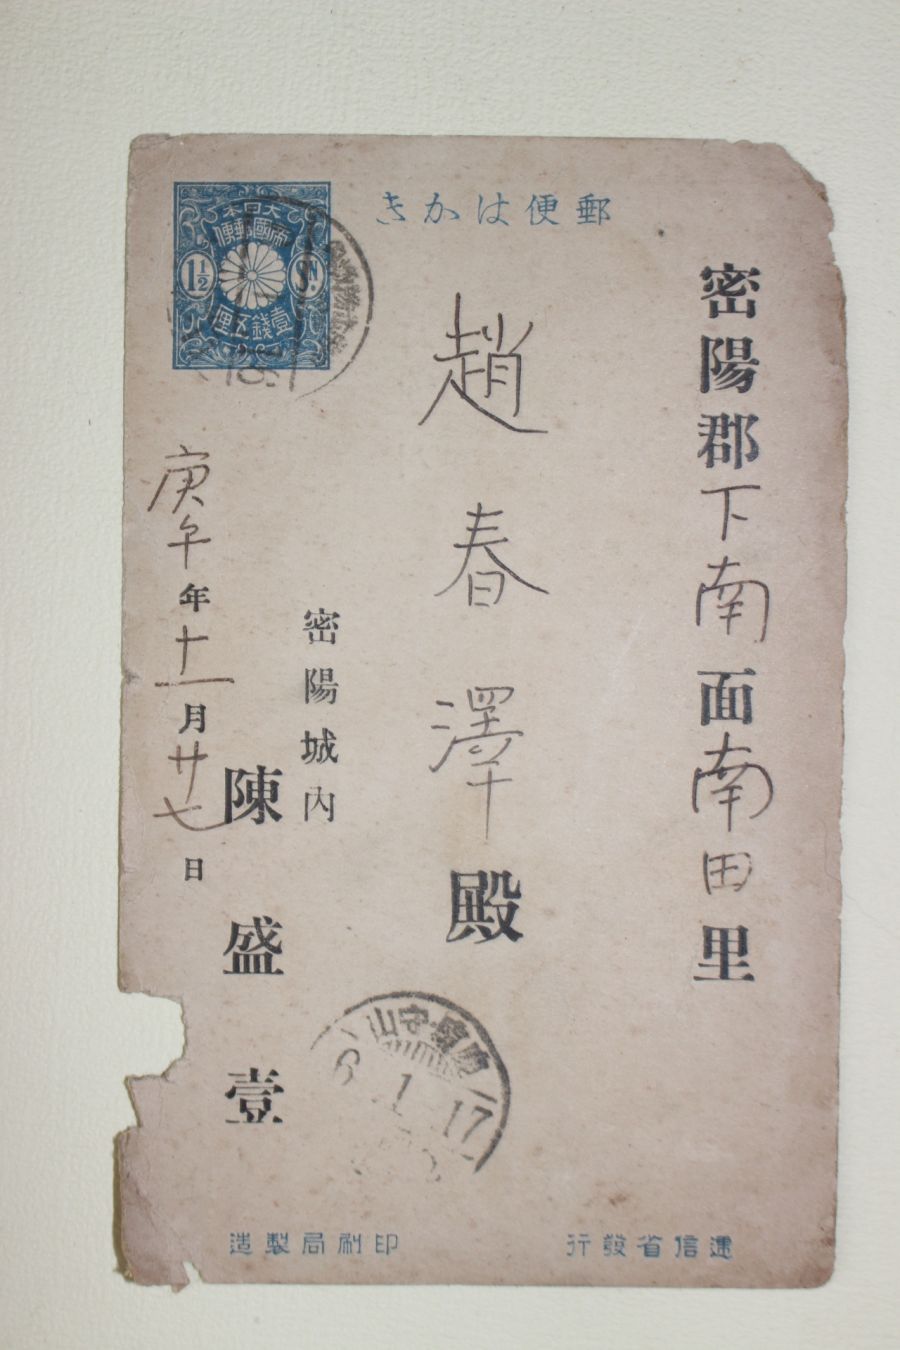 郵便はかき
大日本
帝國郵便
1½ SN.
壹錢五厘
密陽郡下南面南田里
趙春澤殿
密陽城內
陳盛壹
庚午年十一月廿七日
守山
6 1 17
遞信省發行
印刷局製造